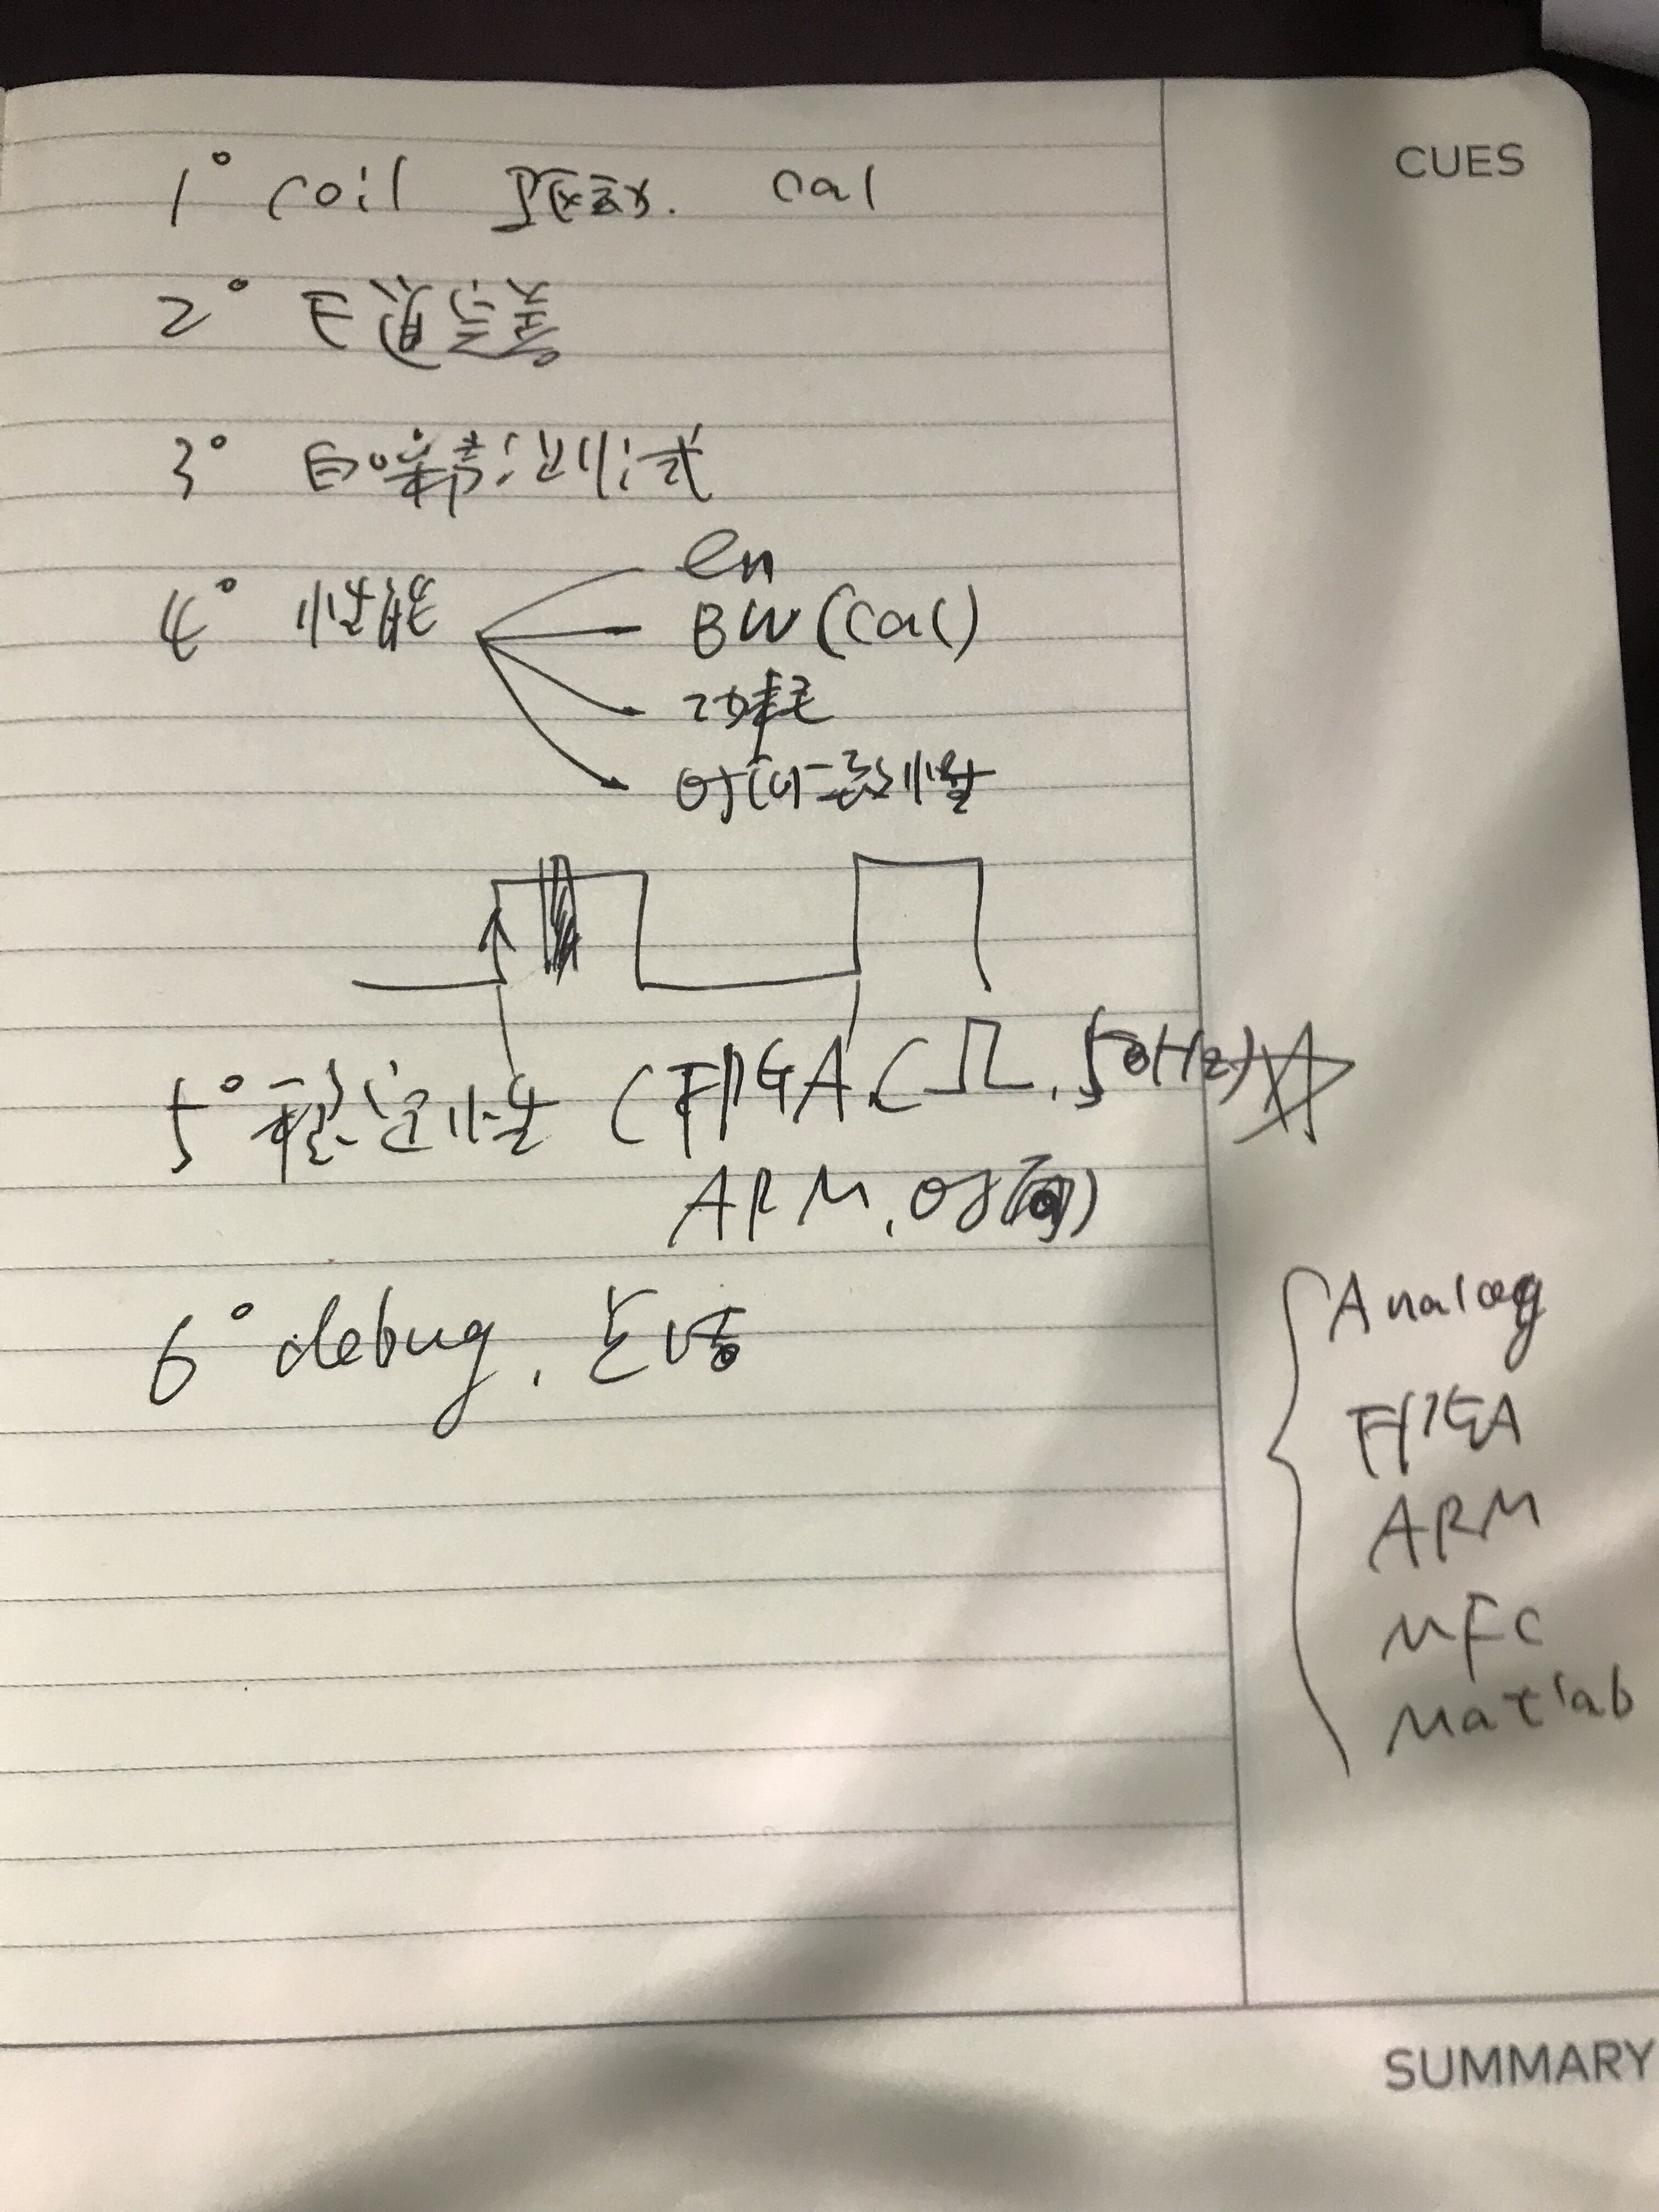 CUES
1° coil 匹数. cal
2° E道
3° 自噪声测试
4° 性能
en
BW (Cal)
功耗
时间 性
5° 稳定性 (FPGA, ( , 50Hz) ☆
ARM, 时间)
6° debug,
{ Analog
FPGA
ARM
MFC
Matlab
SUMMARY